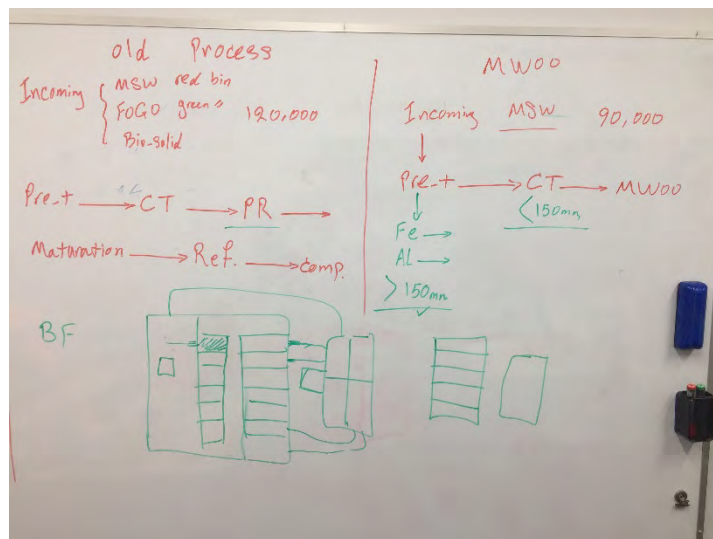 old Process
Incoming
MSW red bin
FOGO green " 120,000
Bio-solid
Pre_t → CT → PR →
Maturation → Ref. → Comp.
BF
MWOO
Incoming MSW 90,000
Pre_t → CT → MWOO
<150mm
Fe →
AL →
>150mm